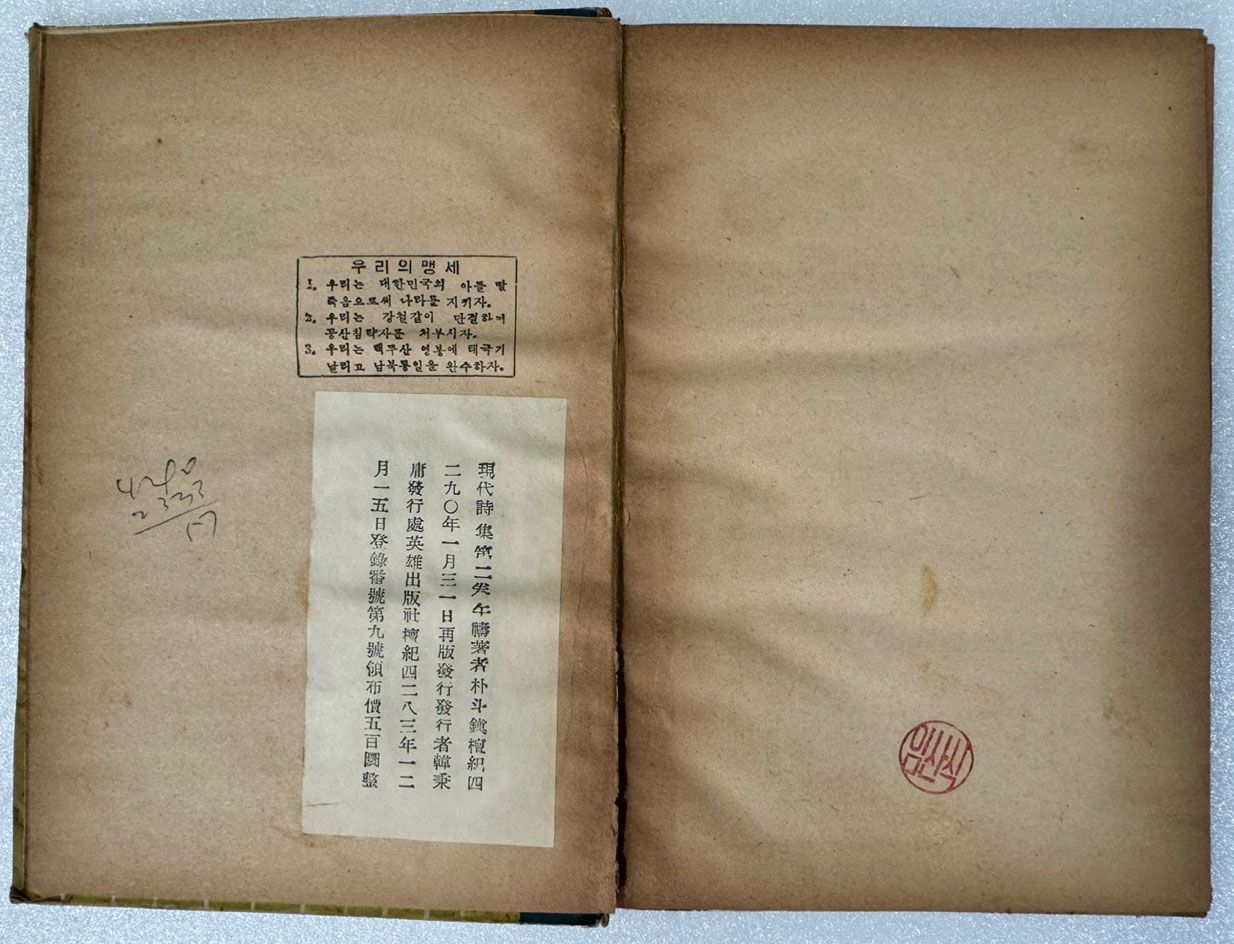 우리의맹세
1. 우리는 대한민국의 아들 딸
죽음으로써 나라를 지키자.
2. 우리는 강철같이 단결하여
공산침략자를 처부시자.
3. 우리는 백두산 영봉에 태극기
날리고 남북통일을 완수하자.
現代詩集第二 午禱著者朴斗鎭檀紀四
二九〇年一月三一日再版發行發行者韓秉
庸發行處英雄出版社檀紀四二八三年一二
月一五日登錄番號第九號頒布價五百圜整
임산식